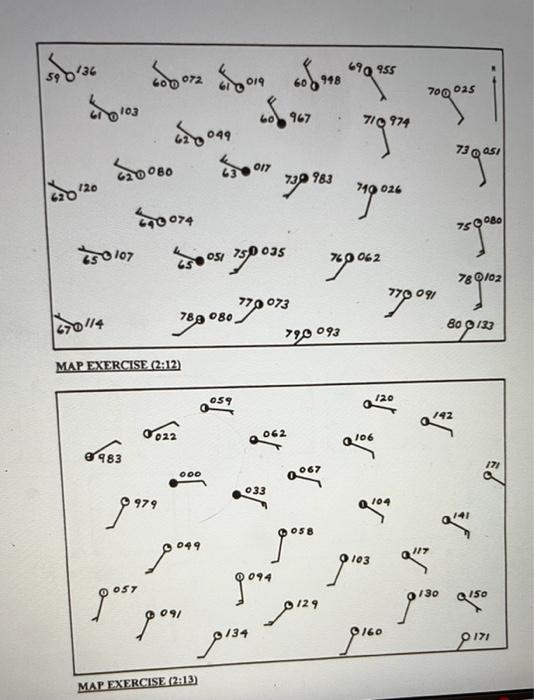 59 136
60 072
61 019
60 948
69 955
70 025
61 103
60 967
71 974
62 049
73 051
62 080
63 017
73 983
62 120
70 026
69 074
75 080
65 107
65 051
75 035
76 062
78 102
77 091
77 073
67 114
78 080
79 093
80 133
MAP EXERCISE (2:12)
059
120
142
022
062
106
983
000
067
171
033
979
104
141
058
049
103
117
094
057
129
130
150
091
134
160
171
MAP EXERCISE (2:13)